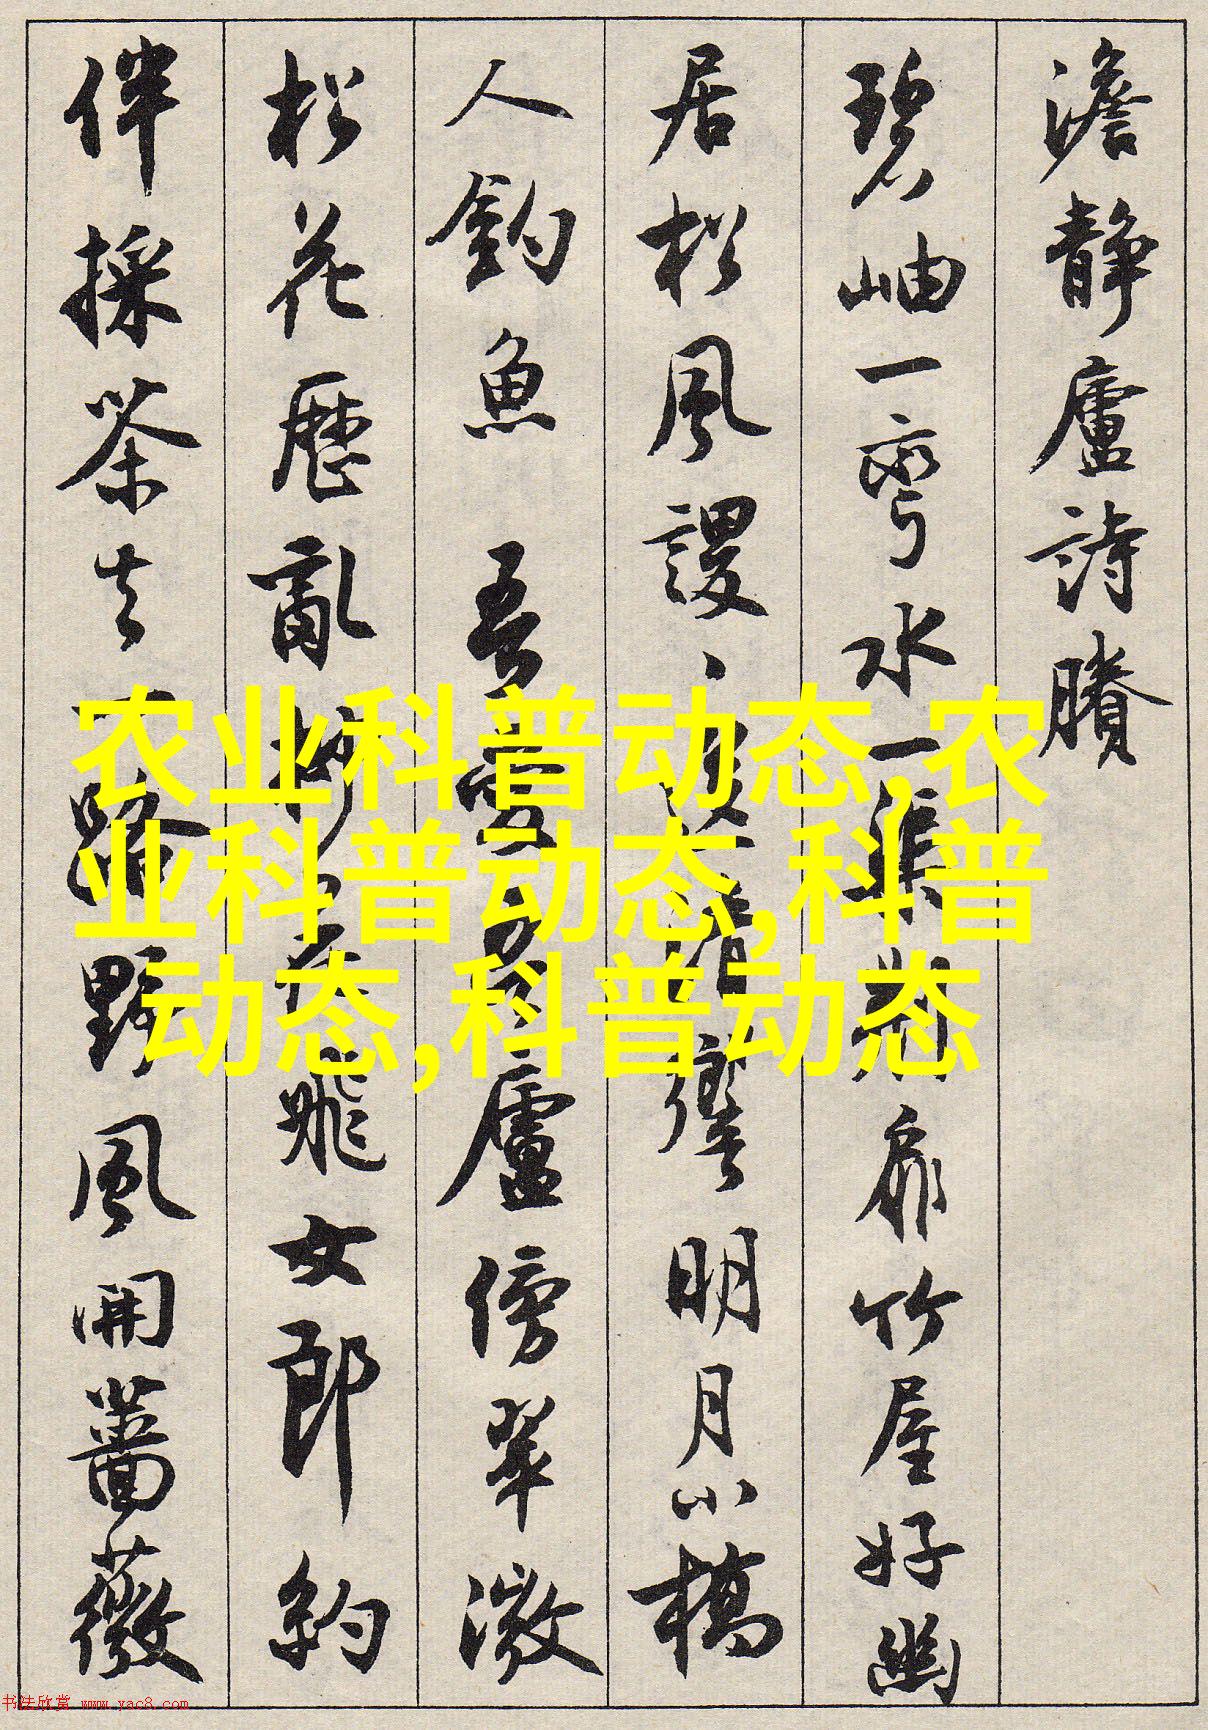 澹静廬詩賸
碧岫一彎水一渠荆扉竹屋好幽
居松風謖、清響明月小橋
人釣魚 吾愛吾廬傍翠微
松花歷亂柳花飛女郎約
伴採茶去一路野風開薔薇
农业科普动态,农
业科普动态,科普
动态,科普动态
书法欣赏 www.yac8.com